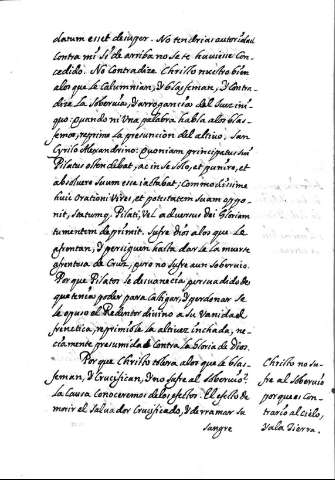 datum esset desuper. No tendrias autoridad
contra mi si de arriba no se te huviese con-
cedido. No contradize Christo nuestro bien
a los que le calumnian, y blasfeman, y contra-
dize la sobervia, y arrogancias del Juez ini-
quo. Quando ni una palabra habla a los blas-
femos, reprime la presuncion del altivo. San
Cyrilo Alexandrino: Quoniam principatus sui
Pilatus ostendebat, ac in se solo, et punire, et
absolvere suum esse iactabat; commodissime
huic orationi vires, et potestatem suam oppo-
nit, statumq. Pilati, vel adversus Dei gloriam
tumentem deprimit. Sufre dios a los que le
afrentan, y persiguen hasta darle la muerte
afrentosa de Cruz, pero no sufre a un sobervio.
Porque Pilatos se desvanecia persuadido de
que tenia poder para castigar, y perdonar se
le opuso el Redentor divino a su vanidad
frenetica, reprimiole la altivez inchada, ne-
ciamente presumida contra la gloria de Dios.
Por que Christo tolera a los que le blas-
feman, y Crucifican, y no sufre al sobervio?
La causa conoceremos de los efectos. El efecto de
morir el Salvador Crucificado, y derramar su
sangre
Christo no su-
fre al sobervio
porque es con-
trario al cielo,
y a la Tierra.